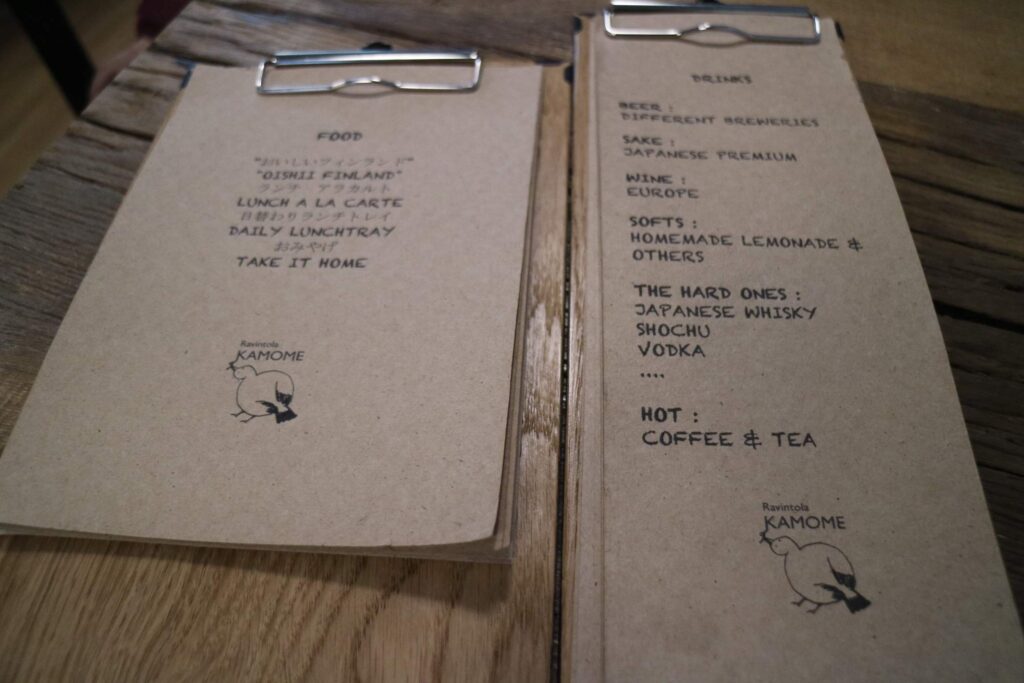 FOOD
"おいしいフィンランド"
"OISHII FINLAND"
ランチ アラカルト
LUNCH A LA CARTE
日替わりランチトレイ
DAILY LUNCHTRAY
おみやげ
TAKE IT HOME
Ravintola
KAMOME
DRINKS
BEER :
DIFFERENT BREWERIES
SAKE :
JAPANESE PREMIUM
WINE :
EUROPE
SOFTS :
HOMEMADE LEMONADE &
OTHERS
THE HARD ONES :
JAPANESE WHISKY
SHOCHU
VODKA
....
HOT :
COFFEE & TEA
Ravintola
KAMOME